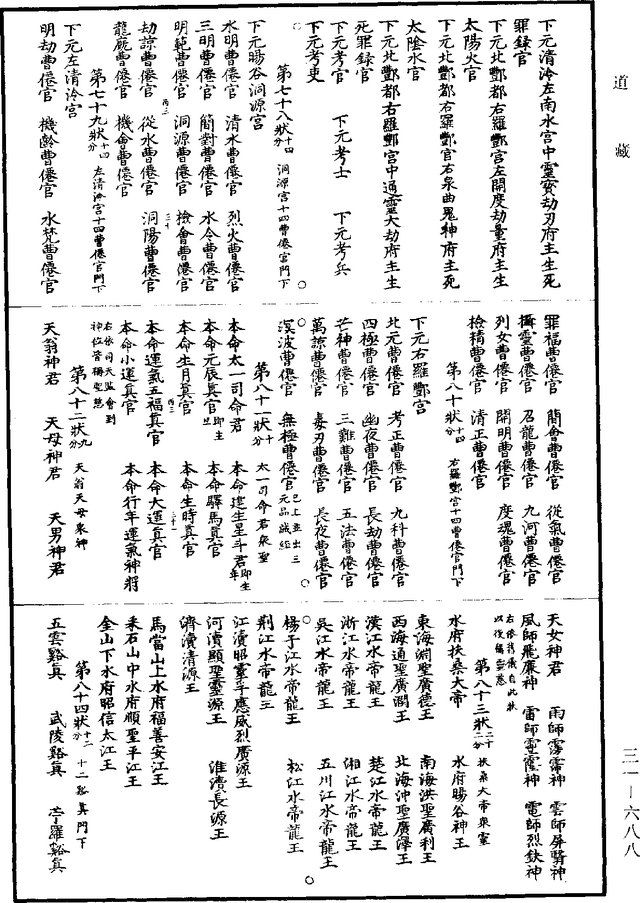 道藏
下元清泠左南水宮中靈寶劫刃府主生死
罪録官
下元北酆都右羅酆宮左開度劫量府主生
太陽火官
下元北酆都右羅酆官右泉曲鬼神府主死
太陰水官
下元北酆都右羅酆宮中通靈大劫府主生
死罪録官
下元考官 下元考士 下元考兵
下元考吏
第七十八狀十四分 洞源宮十四曹僊官門下
下元暘谷洞源宮
水明曹僊官 清水曹僊官 烈火曹僊官
三明曹僊官 簡對曹僊官 水令曹僊官
明範曹僊官 洞源曹僊官 檢會曹僊官
劫諒曹僊官 從水曹僊官 洞陽曹僊官
龍厩曹僊官 機會曹僊官
第七十九狀十四分 左清泠宮十四曹僊官門下
下元左清泠宮
明劫曹僊官 機齡曹僊官 水梵曹僊官
罪福曹僊官 簡會曹僊官 從氣曹僊官
攝靈曹僊官 召龍曹僊官 九河曹僊官
列女曹僊官 開明曹僊官 度魂曹僊官
檢精曹僊官 清正曹僊官
第八十狀十四分 右羅酆宮十四曹僊官門下
下元右羅酆宮
北元曹僊官 考正曹僊官 九科曹僊官
四極曹僊官 幽夜曹僊官 長劫曹僊官
芒神曹僊官 三難曹僊官 五法曹僊官
萬諒曹僊官 毒刃曹僊官 長夜曹僊官
溟波曹僊官 無極曹僊官 已上並出三元品誡經
第八十一狀十分 太一司命君衆聖
本命太一司命君 本命建生星斗君即生年
本命元辰真官即生 本命驛馬真官
本命生月真官 本命生時真官
本命運氣五福真官 本命大運真官
本命小運真官 本命行年運氣神將
右依司天監會到神位皆稱聖慈
第八十二狀九分 天翁天母衆神
天翁神君 天母神君 天男神君
天女神君 雨師霶霈神 雲師屏翳神
風師飛廉神 雷師霆霳神 電師烈鈌神
右依舊儀自此狀以後稱靈慈
第八十三狀二十二分 扶桑大帝衆靈
水府扶桑大帝 水府暘谷神王
東海淵聖廣德王 南海洪聖廣利王
西海通聖廣潤王 北海沖聖廣澤王
漢江水帝龍王 楚江水帝龍王
浙江水帝龍王 湘江水帝龍王
吳江水帝龍王 五川江水帝龍王
楊子江水帝龍王 松江水帝龍王
荆江水帝龍王
江瀆昭靈孚應威烈廣源王
河瀆顯聖靈源王 淮瀆長源王
濟瀆清源王
馬當山上水府福善安江王
采石山中水府順聖平江王
金山下水府昭信太江王
第八十四狀十二分 十二谿真門下
五雲谿真 武陵谿真 苧羅谿真
三一—六八八